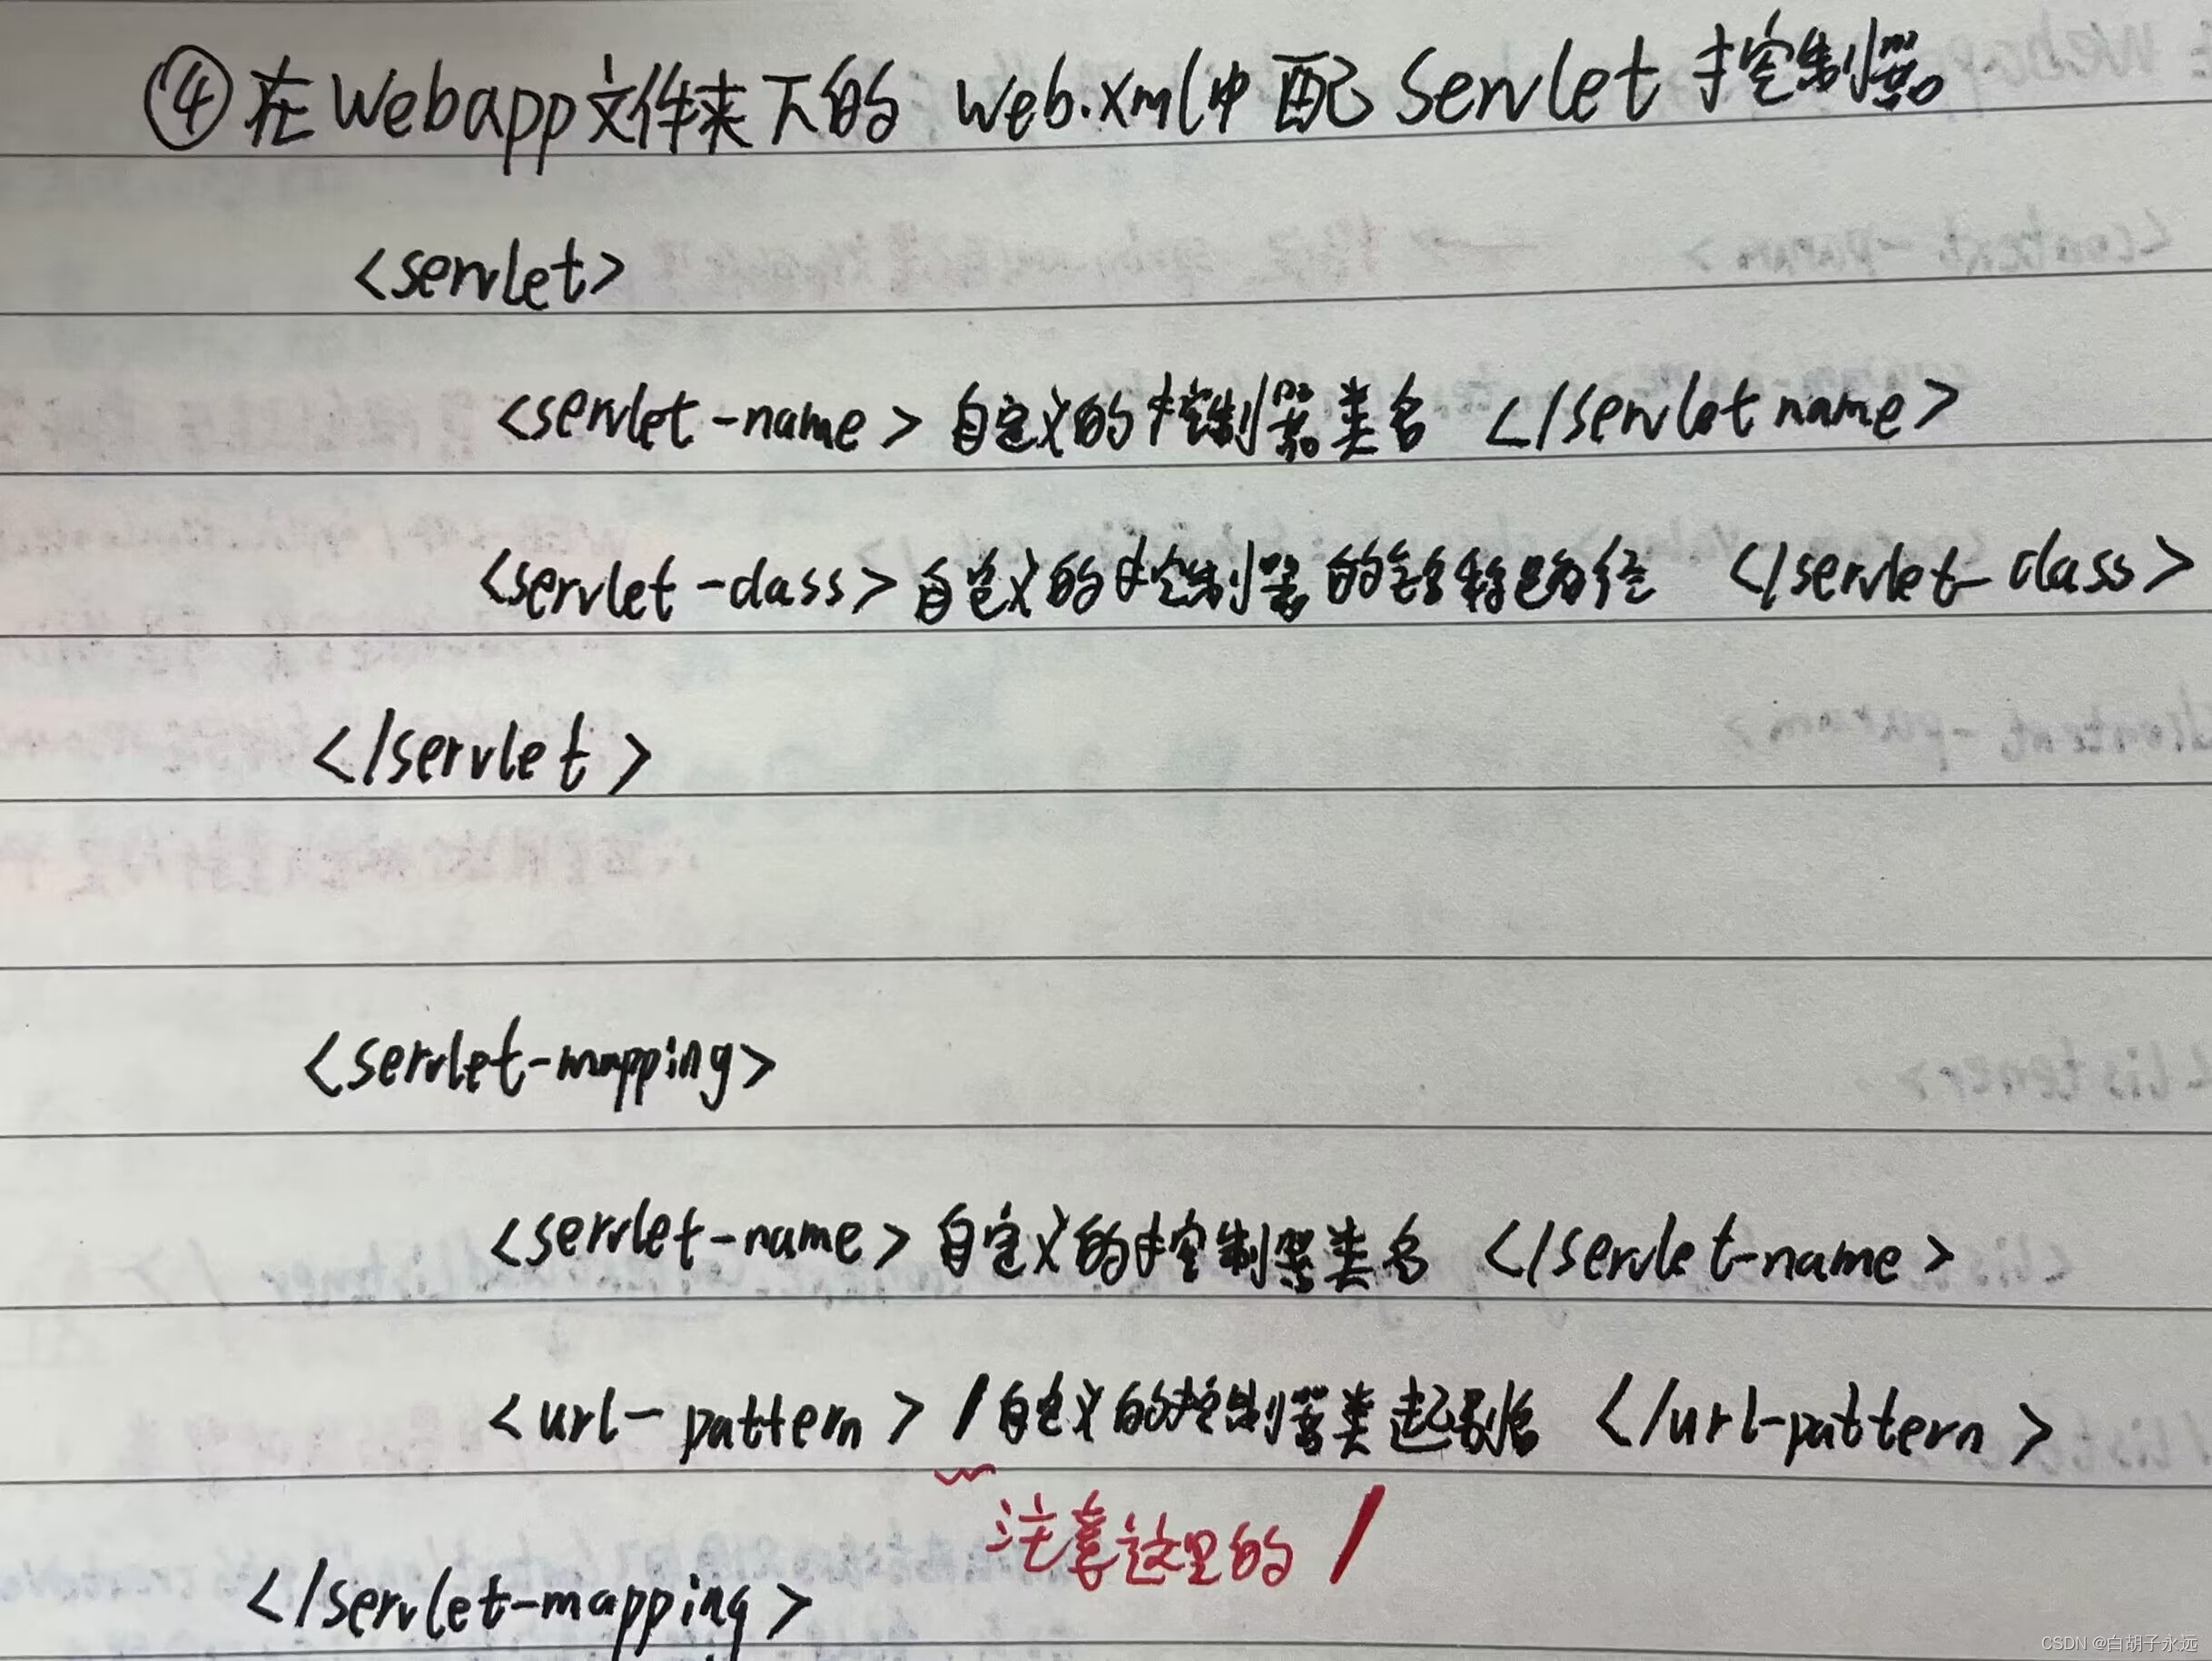 ④在Webapp文件夹下的 web.xml中配Servlet 控制器
<servlet>
<servlet-name>自定义的控制器类名 </servlet name>
<servlet-class>自定义的控制器的全名称路径 </servlet-class>
</servlet>
<servlet-mapping>
<servlet-name>自定义的控制器类名 </servlet-name>
<url-pattern>/自定义的控制器类起别名 </url-pattern>
注意这里的 /
</servlet-mapping>
CSDN @白胡子永远